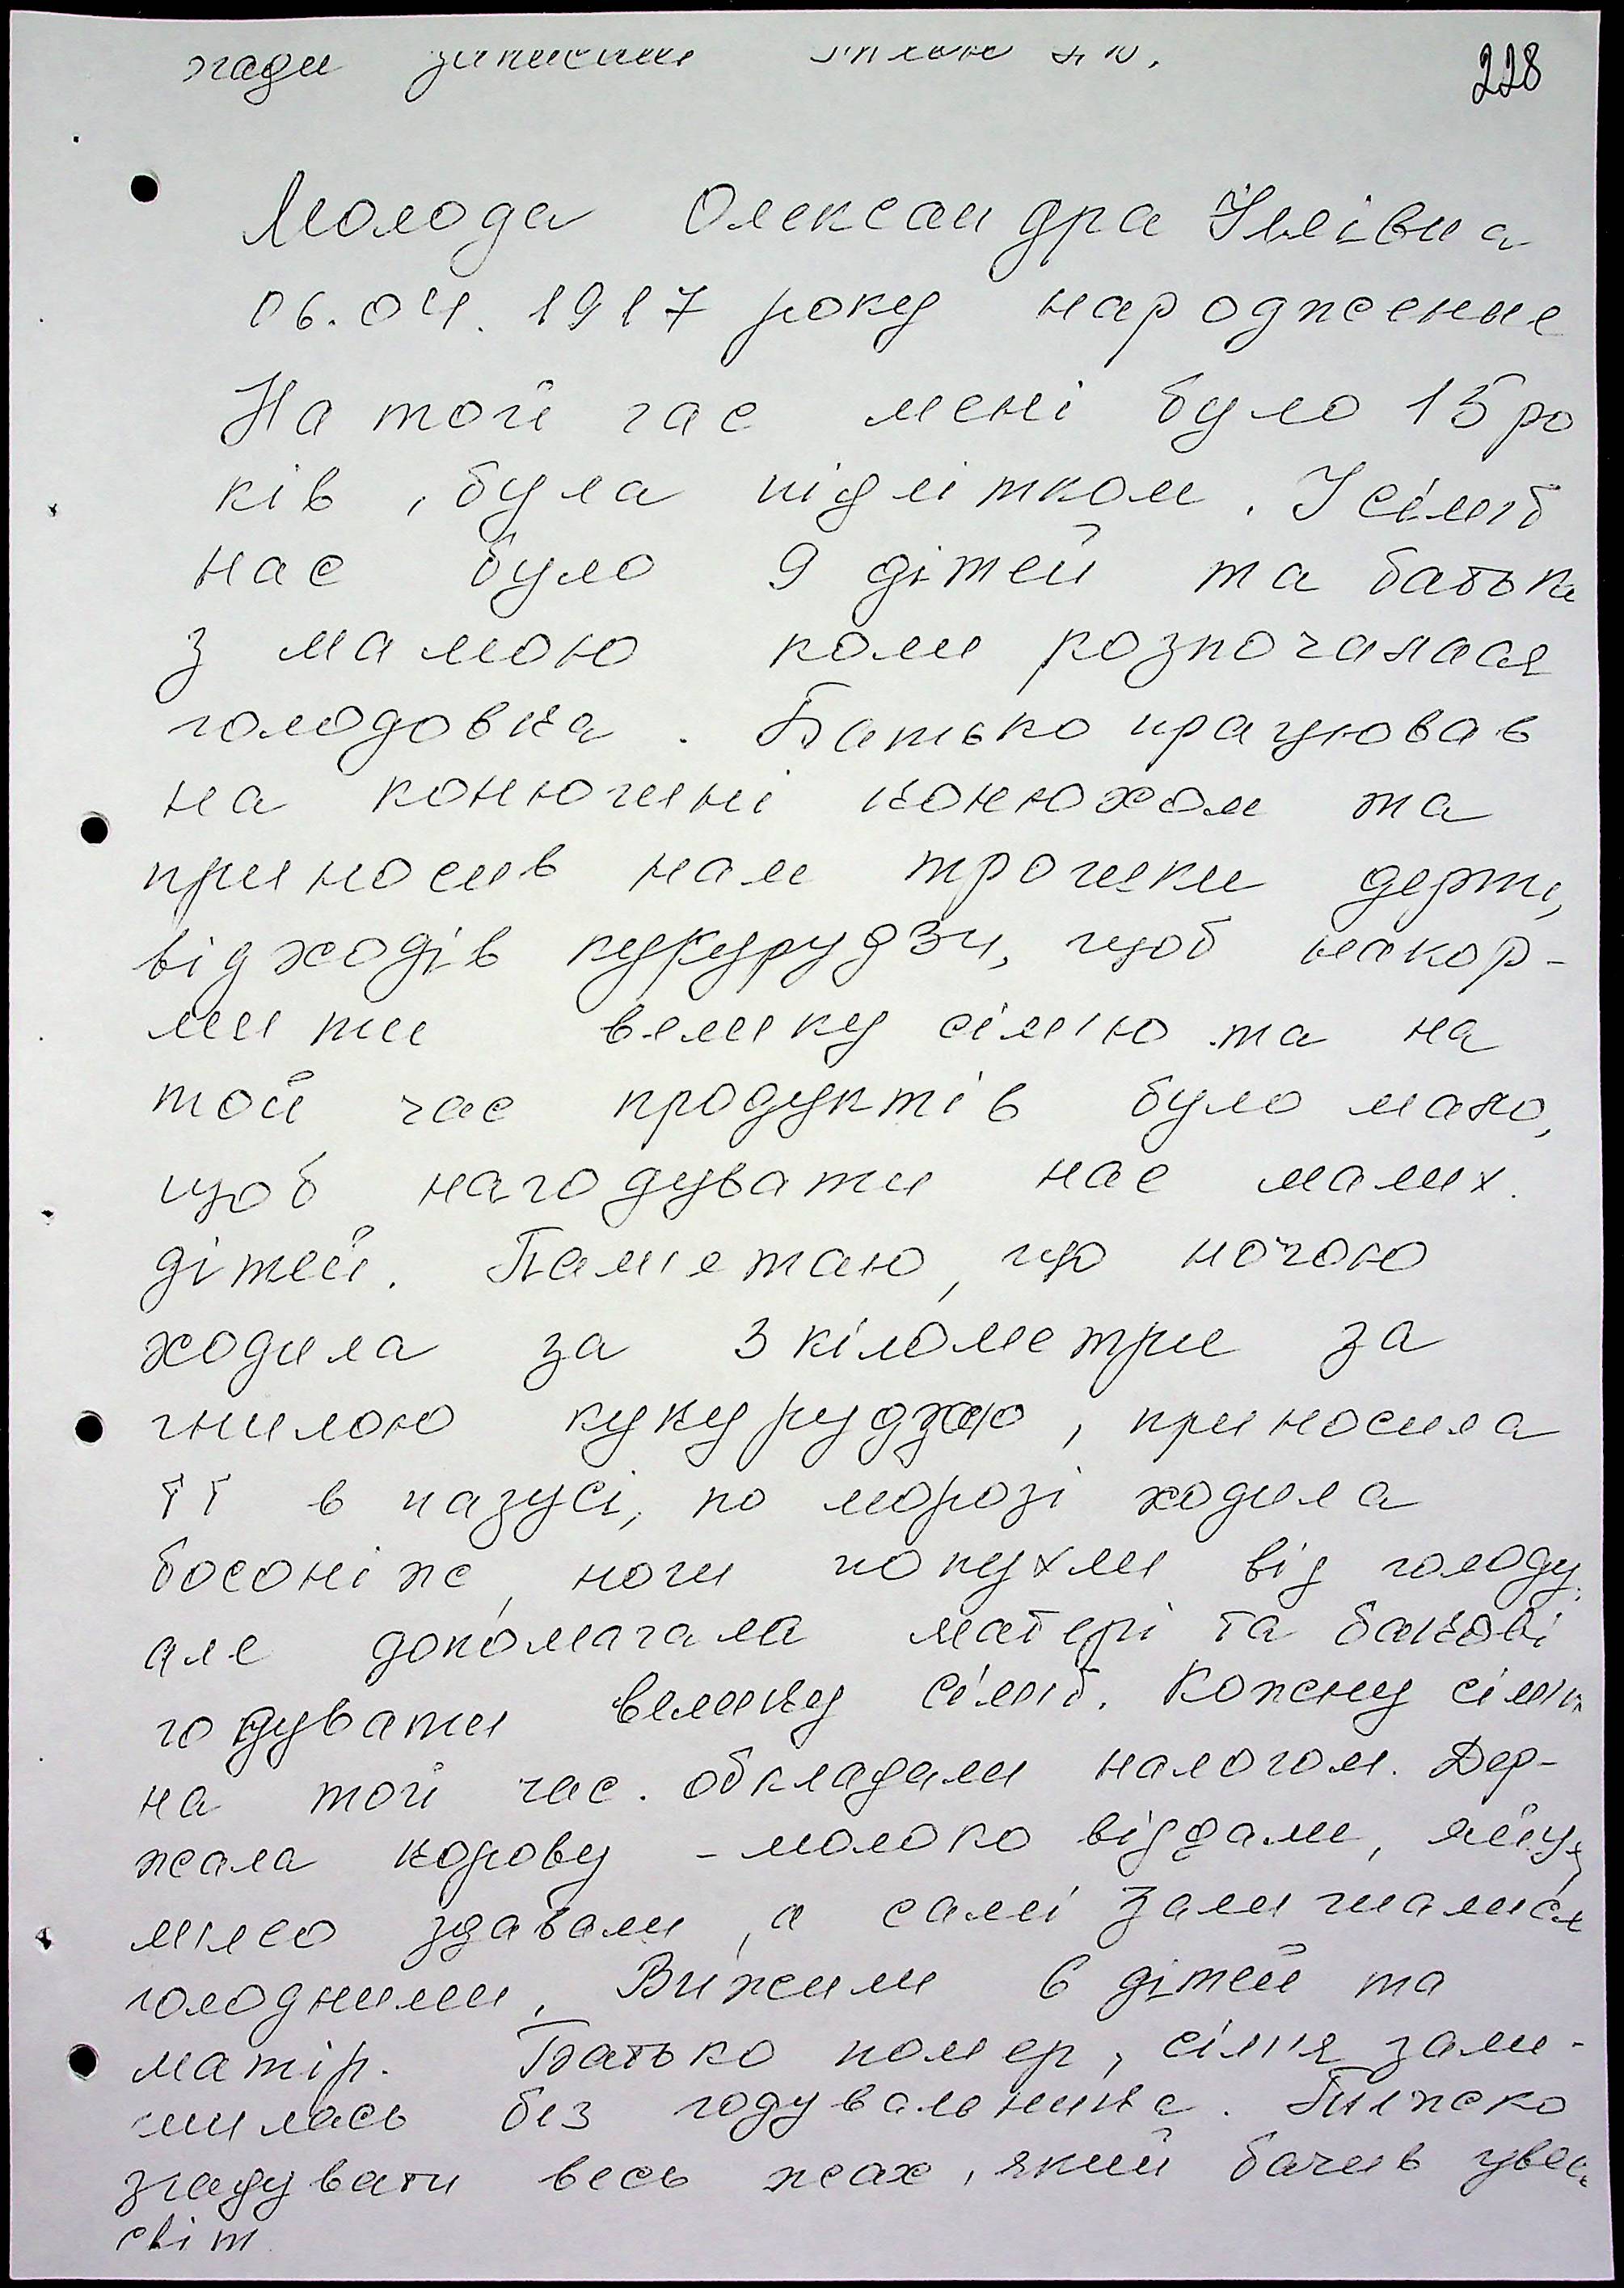 228
Молода Олександра Іллівна
06.04.1917 року народження
На той час мені було 15 ро
ків, була підлітком. У сім'ї б
нас було 9 дітей та батько
з мамою коли розпочалася
голодовка. Батько працював
на конюшні конюхом та
приносив нам трошки дерті,
відходів кукурудзи, щоб накор-
мити велику сім'ю та на
той час продуктів було мало,
щоб нагодувати нас малих
дітей. Пам'ятаю, що ночою
ходила за 3 кілометри за
гнилою кукурудзою, приносила
її в пазусі, по морозі ходила
босоніж, ноги попухли від голоду,
але допомагала матері та батькові
годувати велику сім'ю. Кожну сім'ю
на той час обкладали налогом. Дер-
жала корову - молоко віддали, яйця,
м'ясо здавали, а самі залишалися
голодними. Вижили 6 дітей та
матір. Батько помер, сім'я зали-
шилась без годувальника. Тяжко
згадувати весь жах, який бачив увесь
світ